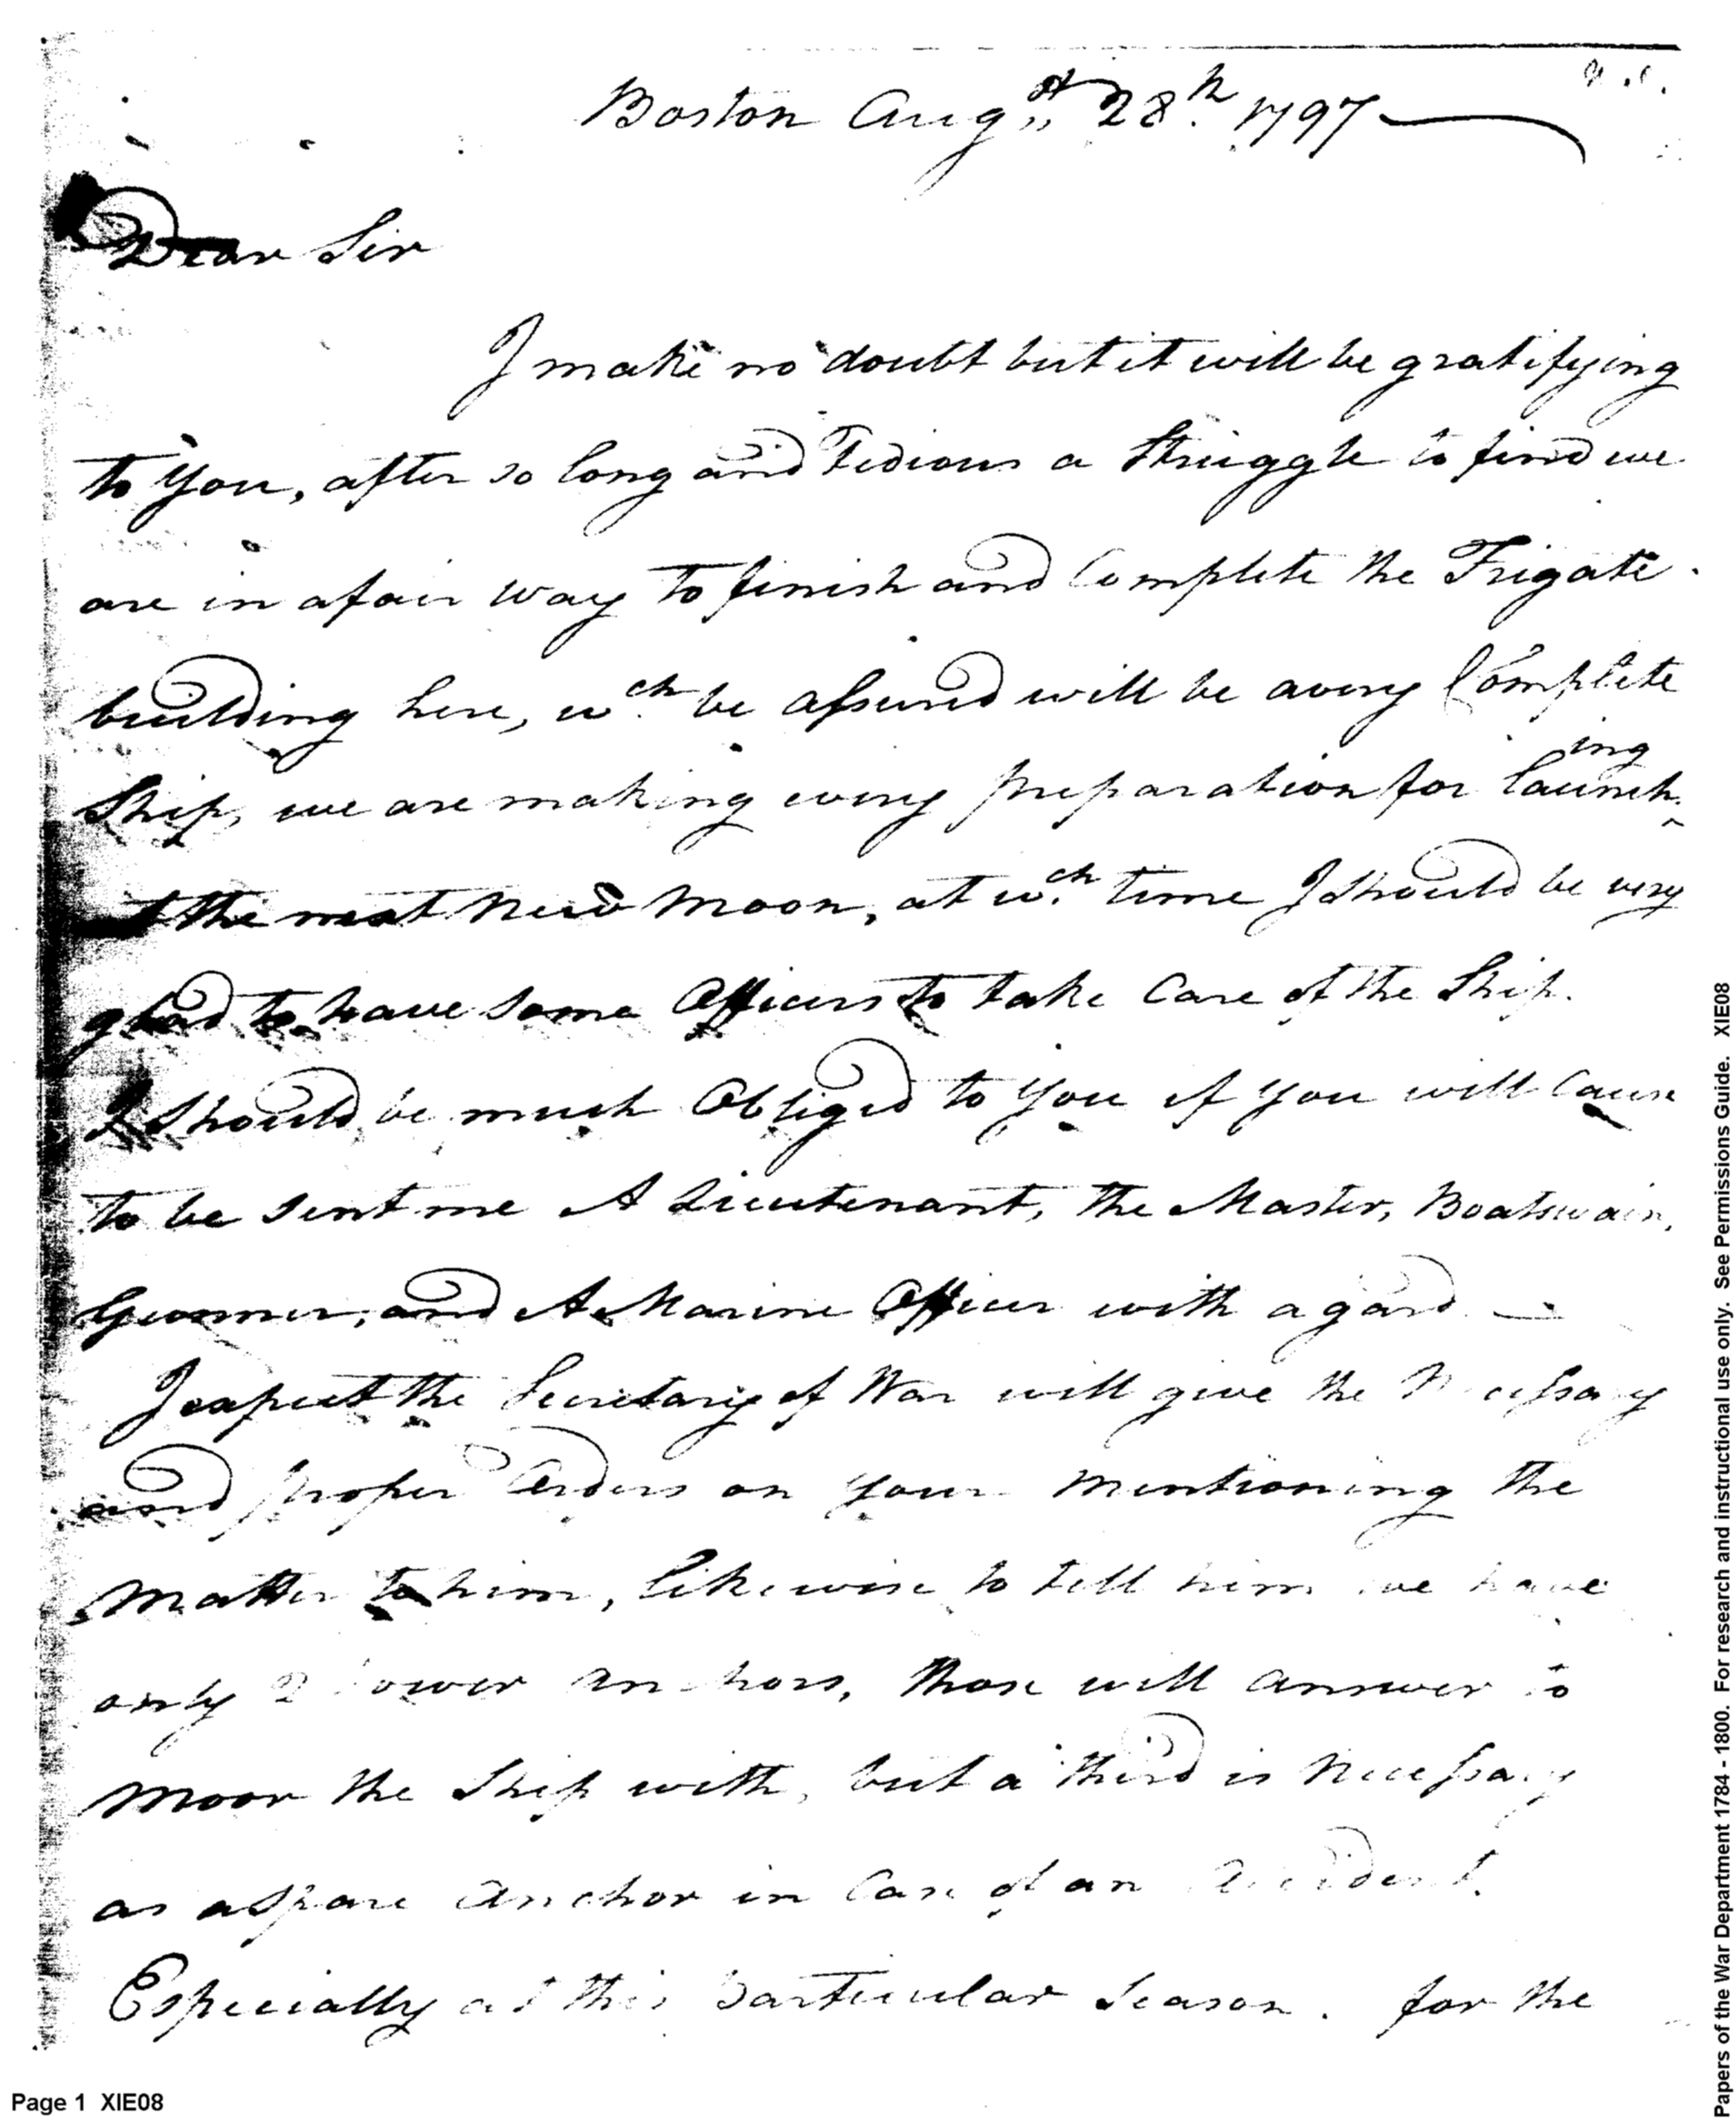 Boston Augst 28th 1797
Dear Sir
I make no doubt but it will be gratifying
to you, after so long and Tedious a Struggle to find we
are in a fair way To finish and Complete the Frigate
building here, wch be assured will be a very Complete
Ship, we are making every preparation for launching
at the next New Moon, at wch time I should be very
glad to have some Officers to take Care of the Ship.
I should be much Obliged to you if you will Cause
to be sent me A Lieutenant, The Master, Boatswain,
Gunner, and A Marine Officer with a gard
I expect the Secretary of War will give the Necessary
and proper Orders on your mentioning the
matter to him, likewise to tell him we have
only 2 bower anchors, those will answer to
moor the Ship with, but a third is Necessary
as a spare anchor in Case of an Accident.
Especially at this particular Season. for the
Page 1 XIE08
Papers of the War Department 1784 - 1800. For research and instructional use only. See Permissions Guide. XIE08